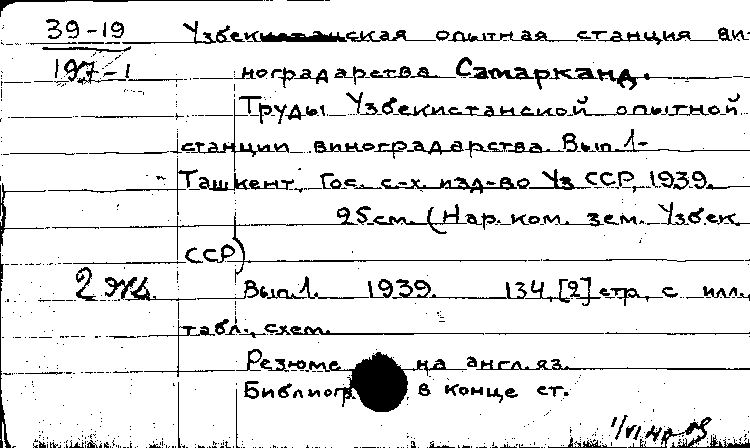 39-19 Узбекская опытная станция ви-
197-1 ноградарства. Самарканд.
Труды Узбекистанской опытной
станции виноградарства. Вып. 1-
Ташкент, Гос. с-х. изд-во Уз ССР, 1939.
25см. (Нар. ком. зем. Узбек.
ССР).
2 экз. Вып.1. 1939. 134,[2] стр., с илл.,
табл., схем.
Резюме на англ. яз.
Библиогр в конце ст.